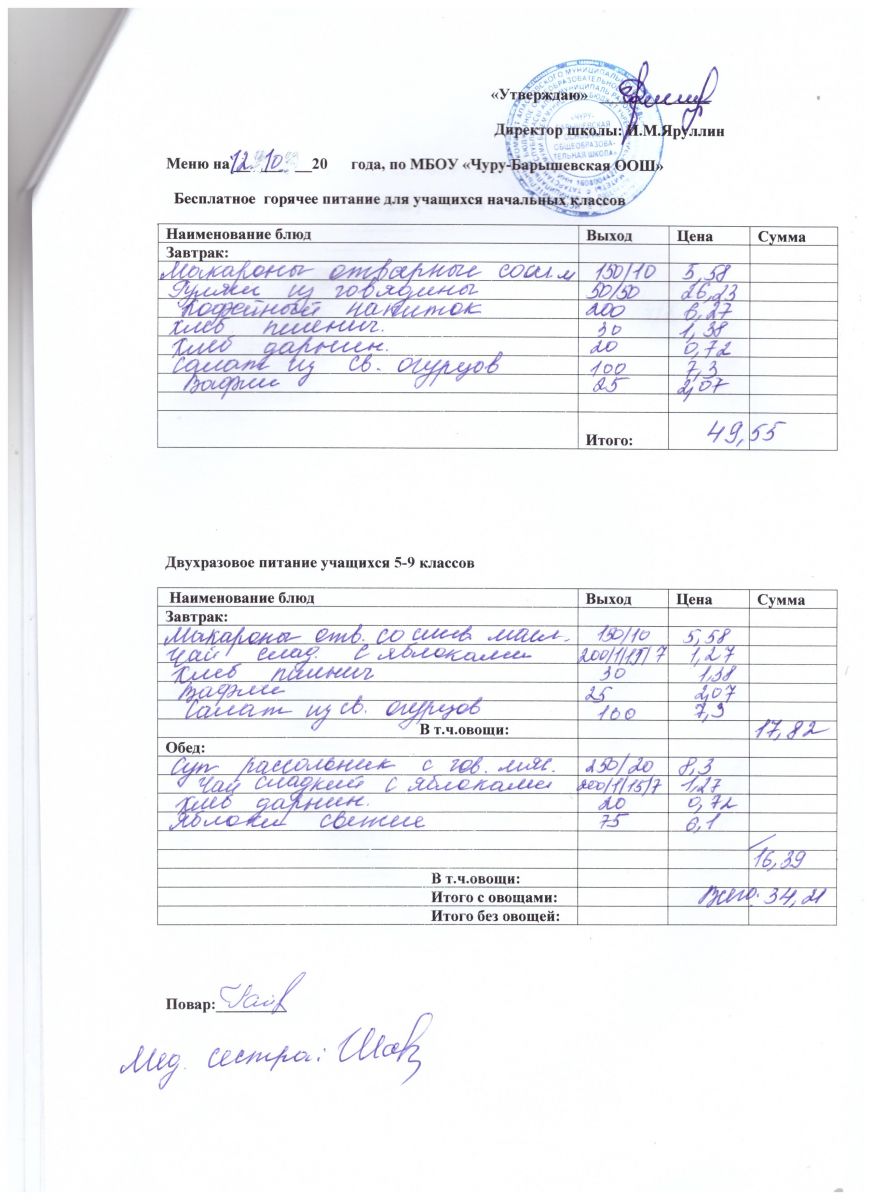 «Утверждаю»
Директор школы: И.М.Яруллин
Меню на 12 10 20 года, по МБОУ «Чуру-Барышевская ООШ»
Бесплатное горячее питание для учащихся начальных классов
Наименование блюд Выход Цена Сумма
Завтрак:
Макароны отварные со сл м 150/10 5,58
Гуляш из говядины 50/50 26,23
Кофейный напиток 200 6,27
Хлеб пшенич. 30 1,38
Хлеб дарнин. 20 0,72
Салат из св. огурцов 100 7,3
Вафли 25 2,07
Итого: 49,55
Двухразовое питание учащихся 5-9 классов
Наименование блюд Выход Цена Сумма
Завтрак:
Макароны отв. со слив масл. 150/10 5,58
Чай слад. с яблоками 200/1/15/7 1,27
Хлеб пшенич 30 1,38
Вафли 25 2,07
Салат из св. огурцов 100 7,3
В т.ч.овощи: 17,82
Обед:
Суп рассольник с гов. мяс. 250/20 8,3
Чай сладкий с яблоками 200/1/15/7 1,27
Хлеб дарнин. 20 0,72
Яблоки свежие 75 6,1
16,39
В т.ч.овощи:
Итого с овощами: Всего: 34,21
Итого без овощей:
Повар:
Мед. сестра: